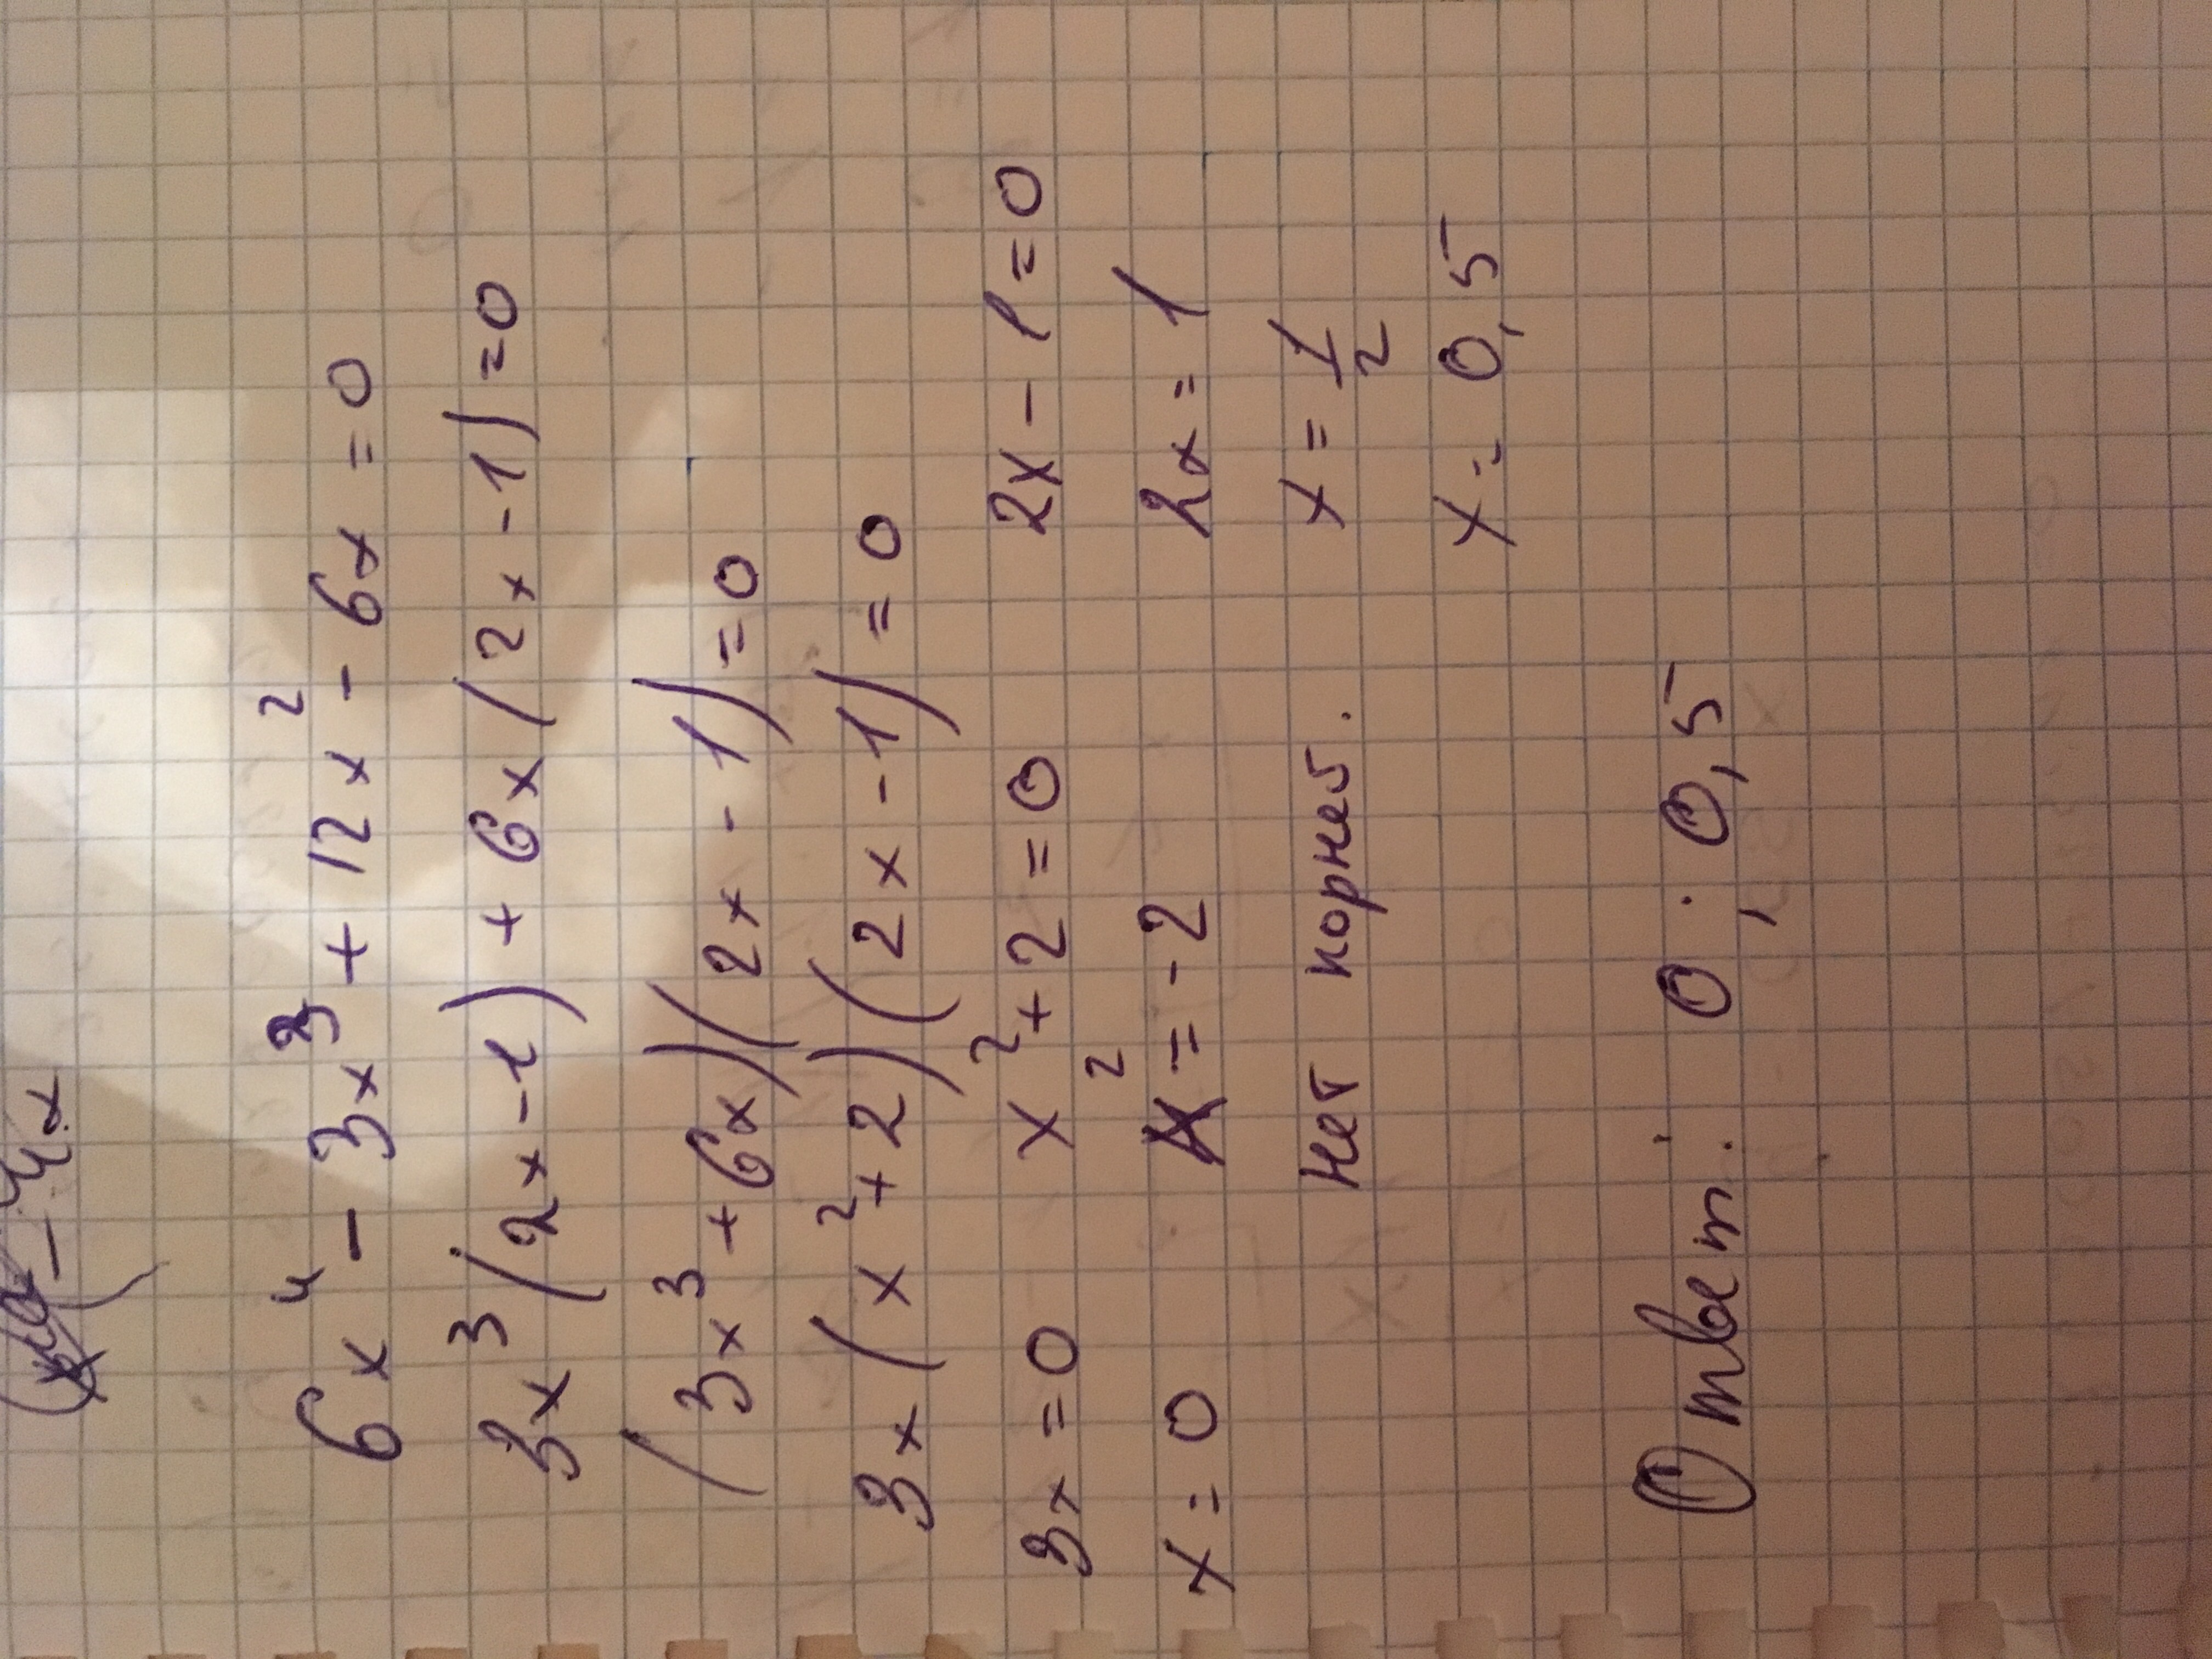 6x⁴ - 3x³ + 12x² - 6x = 0
3x³(2x-1) + 6x(2x-1)=0
(3x³+6x)(2x-1)=0
3x(x²+2)(2x-1)=0
3x=0 x²+2=0 2x-1=0
x=0 x²=-2 2x=1
нет корней. x=1/2
x=0,5
Ответ: 0; 0,5